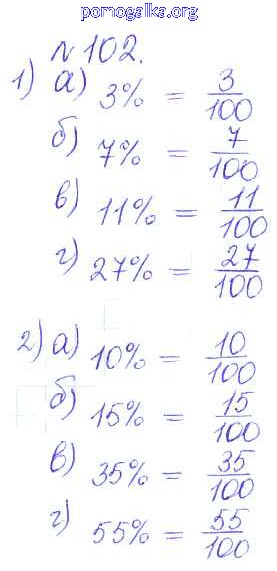 pomogalka.org
№ 102.
1) а) 3% = 3/100
б) 7% = 7/100
в) 11% = 11/100
г) 27% = 27/100
2) а) 10% = 10/100
б) 15% = 15/100
в) 35% = 35/100
г) 55% = 55/100